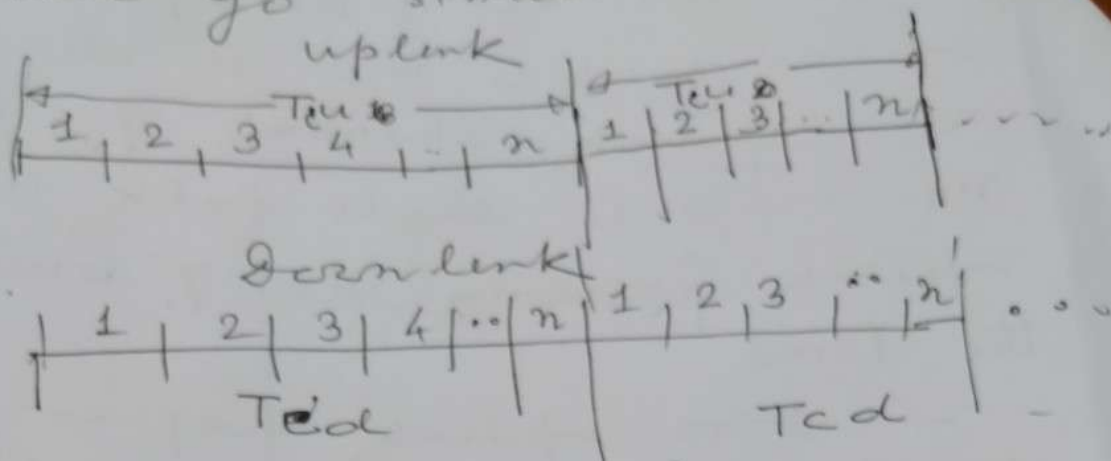 go
uplink
Tcu Tcu
1 2 3 4 .. n 1 2 3 ... n
Down link
1 2 3 4 .. n 1 2 3 .. n
Tcd Tcd